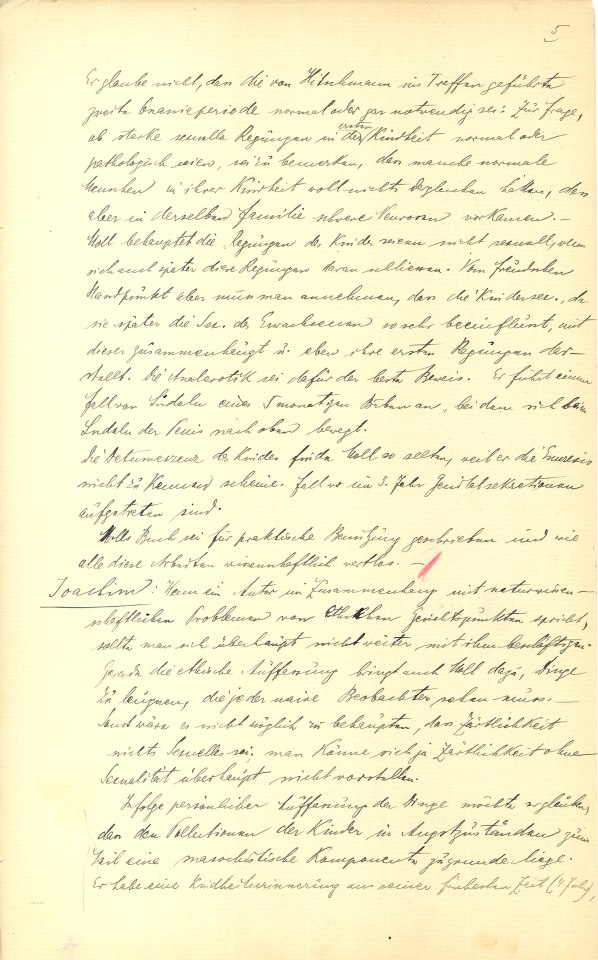 5
Er glaube nicht, dass die von Hitschmann ins Treffen geführte
zweite Onanieperiode normal oder gar notwendig sei. Zur Frage,
ob starke sexuelle Regungen in der ersten Kindheit normal oder
pathologisch seien, sei zu bemerken, dass manche normale
Menschen in ihrer Kindheit voll nichts dergleichen hätten, dass
aber in derselben Familie schwere Neurosen vorkämen. —
Moll behauptet die Regungen des Kindes seien nicht sexuell, wenn
sich auch später diese Regungen daran schliessen. Vom Freudschen
Standpunkt aber muss man annehmen, dass die Kindersex., da
sie später die Sex. des Erwachsenen so sehr beeinflusst, mit
dieser zusammenhängt u. eben ihre ersten Regungen dar-
stellt. Die Analerotik sei dafür der beste Beweis. Er führt einen
Fall von Ludeln eines 5 monatigen Buben an, bei dem sich beim
Ludeln der Penis nach oben bewegt.
Die Detumeszenz des Kindes finde Moll so selten, weil er die Enuresis
nicht zu kennen scheine. Fall wo im 3. Jahr Genitalsekretionen
aufgetreten sind.
Molls Buch sei für praktische Benützung geschrieben und wie
alle diese Arbeiten wissenschaftlich wertlos. —
Joachim: Wenn ein Autor im Zusammenhang mit naturwissen-
schaftlichen Problemen von ethischen Gesichtspunkten spricht,
sollte man sich überhaupt nicht weiter mit ihm beschäftigen.
Gerade die ethische Auffassung bringt auch Moll dazu, Dinge
zu leugnen, die jeder naive Beobachter sehen muss. —
Sonst wäre es nicht möglich zu behaupten, dass Zärtlichkeit
nichts Sexuelles sei; man könne sich ja Zärtlichkeit ohne
Sexualität überhaupt nicht vorstellen.
Infolge persönlicher Auffassung der Dinge möchte er glauben,
dass den Pollutionen der Kinder in Angstzuständen zum
Teil eine masochistische Komponente zugrunde liege.
Er habe eine Kindheitserinnerung aus seiner frühesten Zeit (4 Jahr),